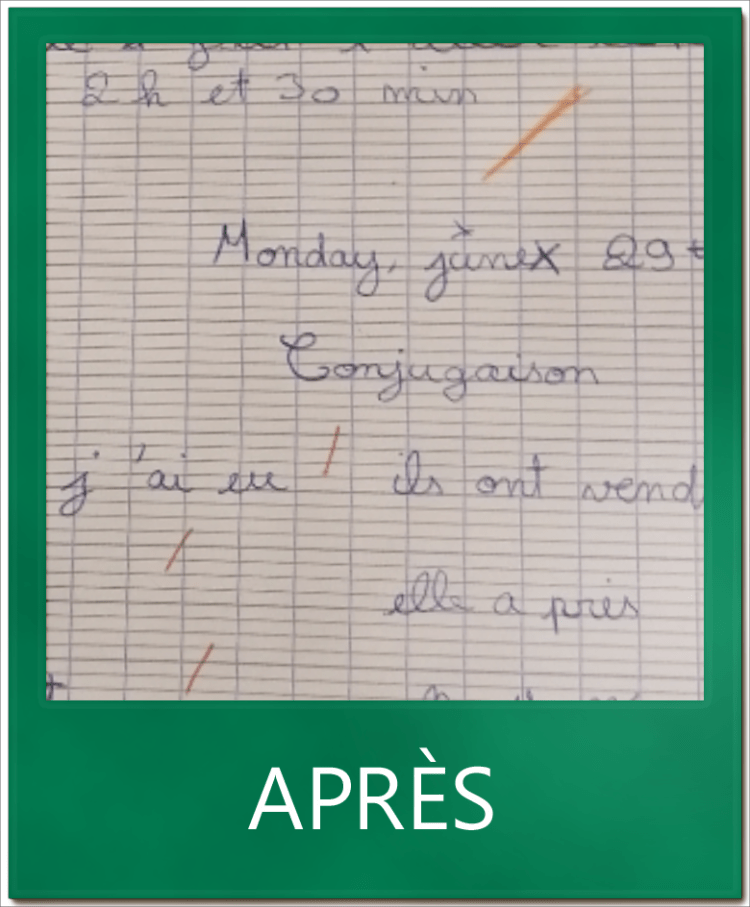 2 h et 30 min
Monday, june
Conjugaison
j'ai eu ils ont vend
elle a pris
APRÈS